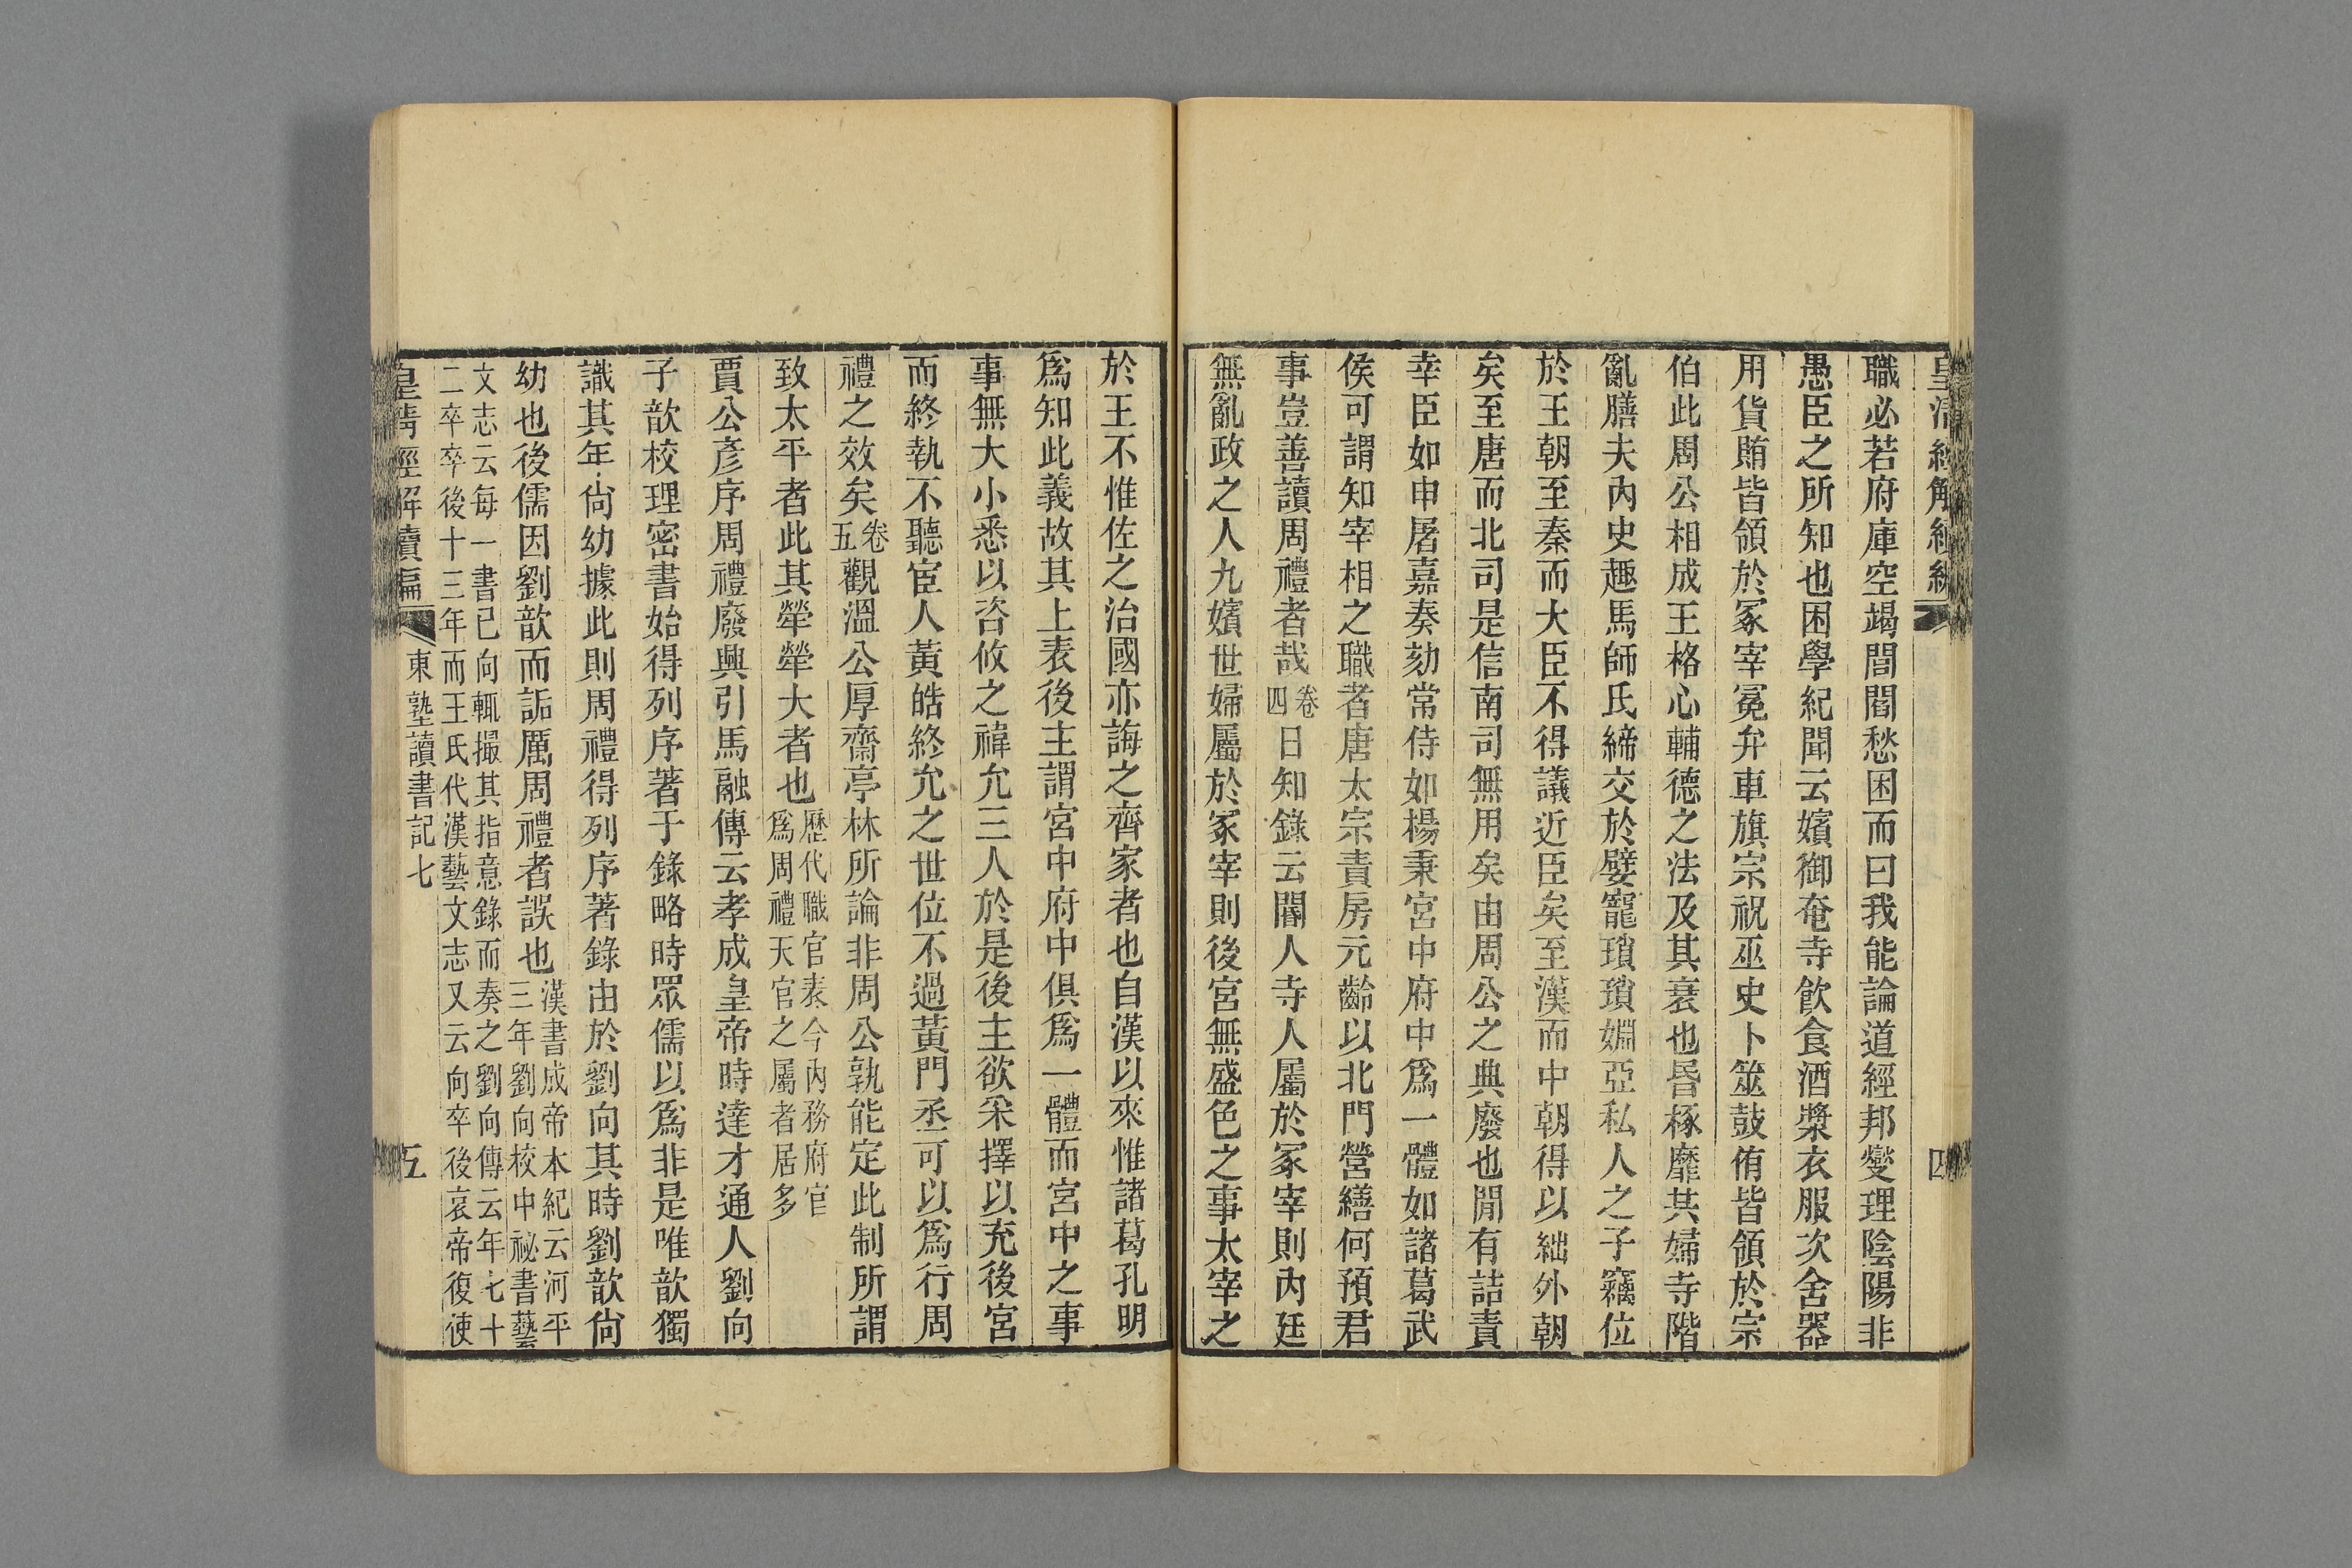 皇清經解續編
四
職必若府庫空竭閭閻愁困而曰我能論道經邦燮理陰陽非
愚臣之所知也困學紀聞云嬪御奄寺飮食酒漿衣服次舍器
用貨賄皆領於冢宰冕弁車旗宗祝巫史卜筮鼓侑皆領於宗
伯此周公相成王格心輔德之法及其衰也昬椓靡共婦寺階
亂膳夫內史趣馬師氏締交於嬖寵瑣瑣婣亞私人之子竊位
於王朝至秦而大臣不得議近臣矣至漢而中朝得以絀外朝
矣至唐而北司是信南司無用矣由周公之典廢也閒有詰責
幸臣如申屠嘉奏劾常侍如楊秉宮中府中爲一體如諸葛武
侯可謂知宰相之職者唐太宗責房元齡以北門營繕何預君
事豈善讀周禮者哉卷四日知錄云閽人寺人屬於冢宰則內廷
無亂政之人九嬪世婦屬於冢宰則後宮無盛色之事太宰之
於王不惟佐之治國亦誨之齊家者也自漢以來惟諸葛孔明
爲知此義故其上表後主謂宮中府中俱爲一體而宮中之事
事無大小悉以咨攸之禕允三人於是後主欲采擇以充後宮
而終執不聽宦人黃皓終允之世位不過黃門丞可以爲行周
禮之效矣卷五觀溫公厚齋亭林所論非周公孰能定此制所謂
致太平者此其犖犖大者也歷代職官表今內務府官爲周禮天官之屬者居多
賈公彥序周禮廢興引馬融傳云孝成皇帝時達才通人劉向
子歆校理密書始得列序著于錄略時眾儒以爲非是唯歆獨
識其年尙幼據此則周禮得列序著錄由於劉向其時劉歆尙
幼也後儒因劉歆而詬厲周禮者誤也漢書成帝本紀云河平三年劉向校中祕書藝
文志云每一書已向輒撮其指意錄而奏之劉向傳云年七十
二卒卒後十三年而王氏代漢藝文志又云向卒後哀帝復使
皇清經解續編
東塾讀書記七
五